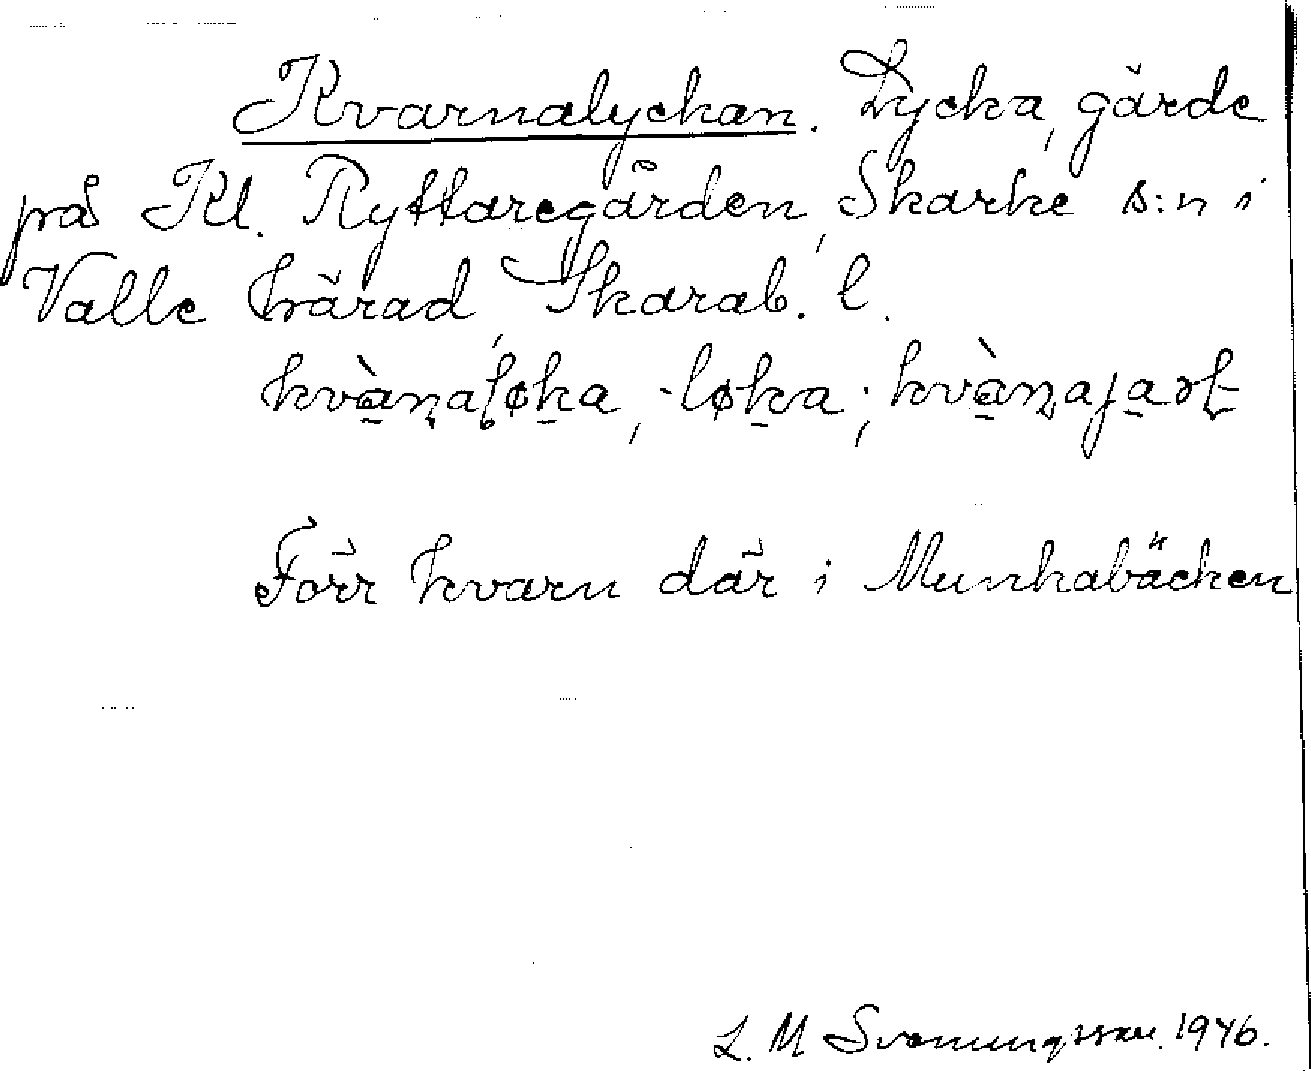 Kvarnalyckan. Lycka, gärde
på Kl. Ryttaregården, Skarke s:n i
Valle härad, Skarab. l.
kvàn̠aḷøka, -løka; kvàṇajaṛt
Förr kvarn där i Munkabäcken
L. M Svenungsson. 1946.